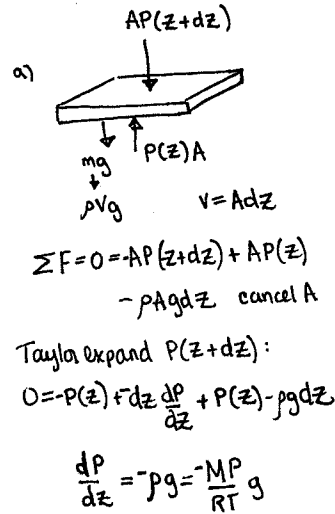 AP(z+dz)
a)
mg
P(z)A
ρVg
V=Adz
ΣF=0=-AP(z+dz)+AP(z)
-ρAgdz cancel A
Taylor expand P(z+dz):
0=-P(z)+-dz dP/dz + P(z)-ρgdz
dP/dz = -ρg = -MP/RT g